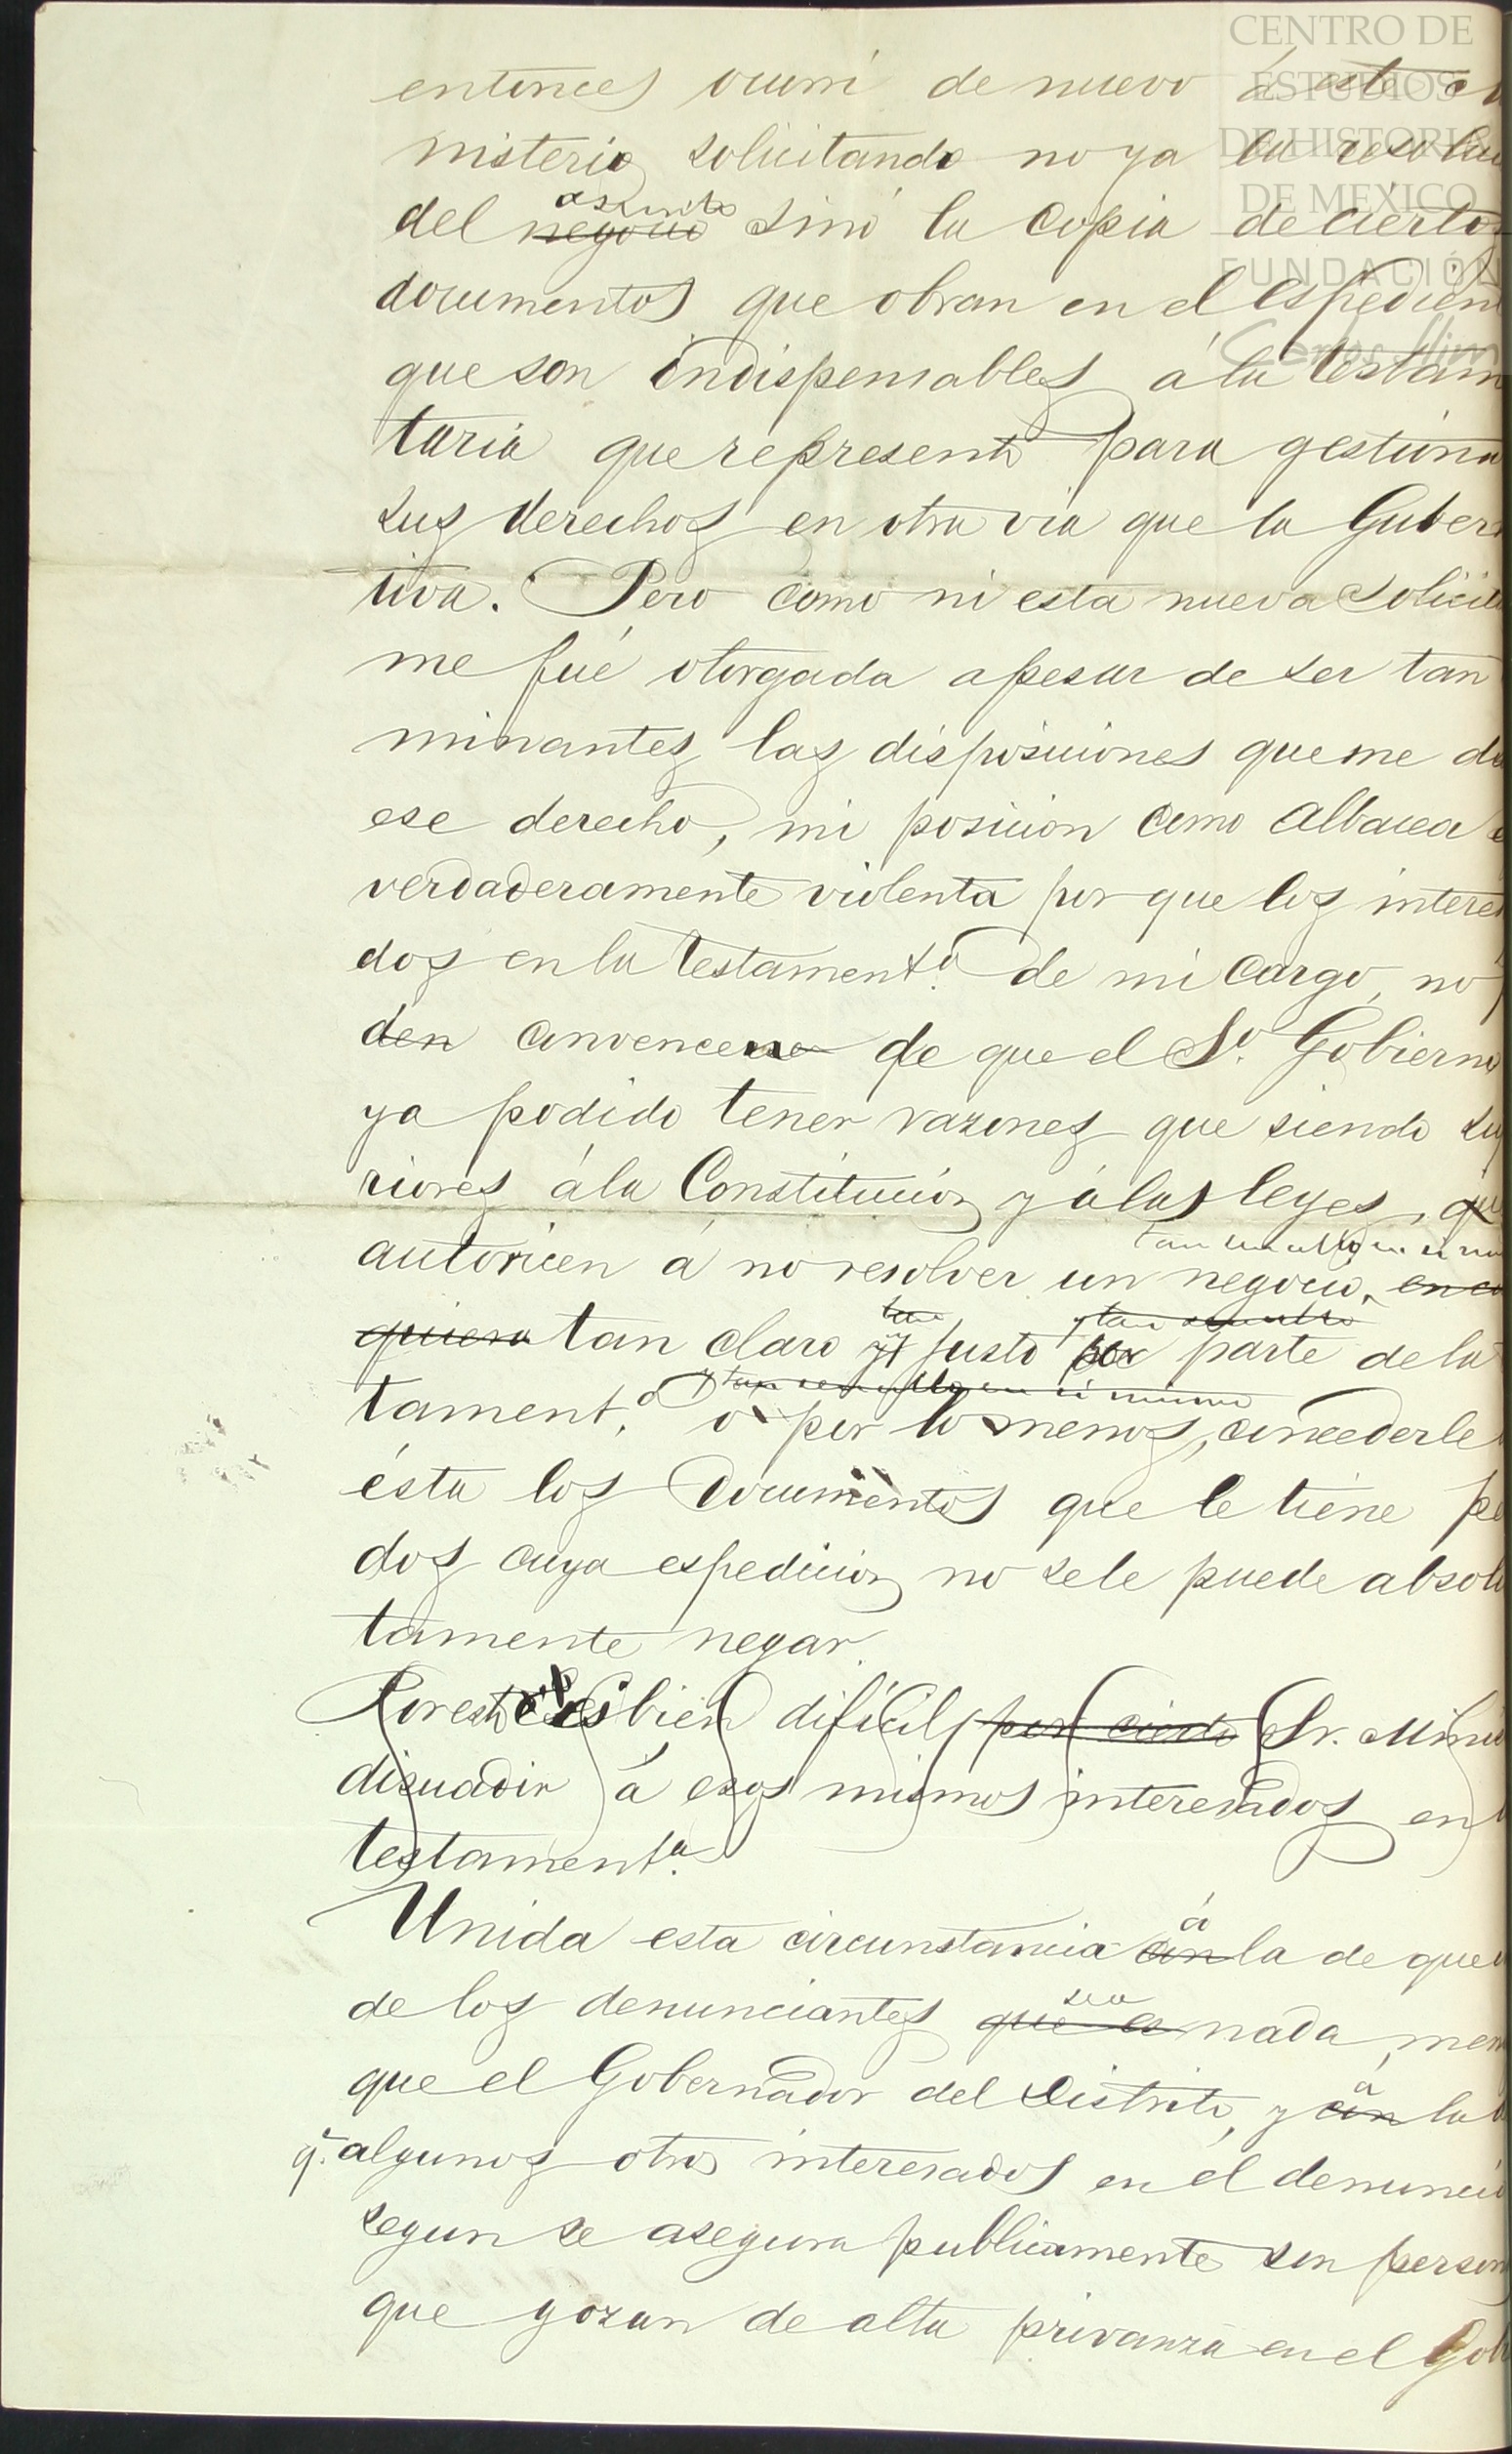 CENTRO DE
ESTUDIOS
DE HISTORIA
DE MEXICO
FUNDACIÓN
Carlos Slim
entonces ocurrí de nuevo á este
nisterio solicitando no ya la resolu
asunto
del negocio sinó la copia de ciertos
documentos que obran en el espedien
que son indispensables á la testam
taria que represento para gestiona
sus derechos en otra via que la Guber
tiva. Pero como ni esta nueva solicitu
me fué otorgada apesar de ser tan
minantes las disposiciones que me da
ese derecho, mi posicion como albacea e
verdaderamente violenta por que los interes
dos en la testament.ª de mi cargo, no p
den convencerse de que el S.º Gobierno
ya podido tener razones que siendo su
riores á la Constitución y á las leyes, que
tan sencillo en si mis
autoricen á no resolver un negocio, en cu
tan y tan sencillo
quiera tan claro y justo por parte de la
y tan sencillo en si mismo
tament.ª ó por lo menos, concederle
ésta los documentos que le tiene pe
dos cuya espedicion no se le puede absolu
tamente negar.
Por esto es bien difícil por cierto Sr. Minis
disuadir á esos mismos interesados en
testament.ª
á
Unida esta circunstancia con la de que u
sea
de los denunciantes que es nada, men
á
que el Gobernador del Distrito, y con la d
q.e algunos otros interesados en el denuncio
segun se asegura publicamente son person
que gozan de alta privanza en el Gobi